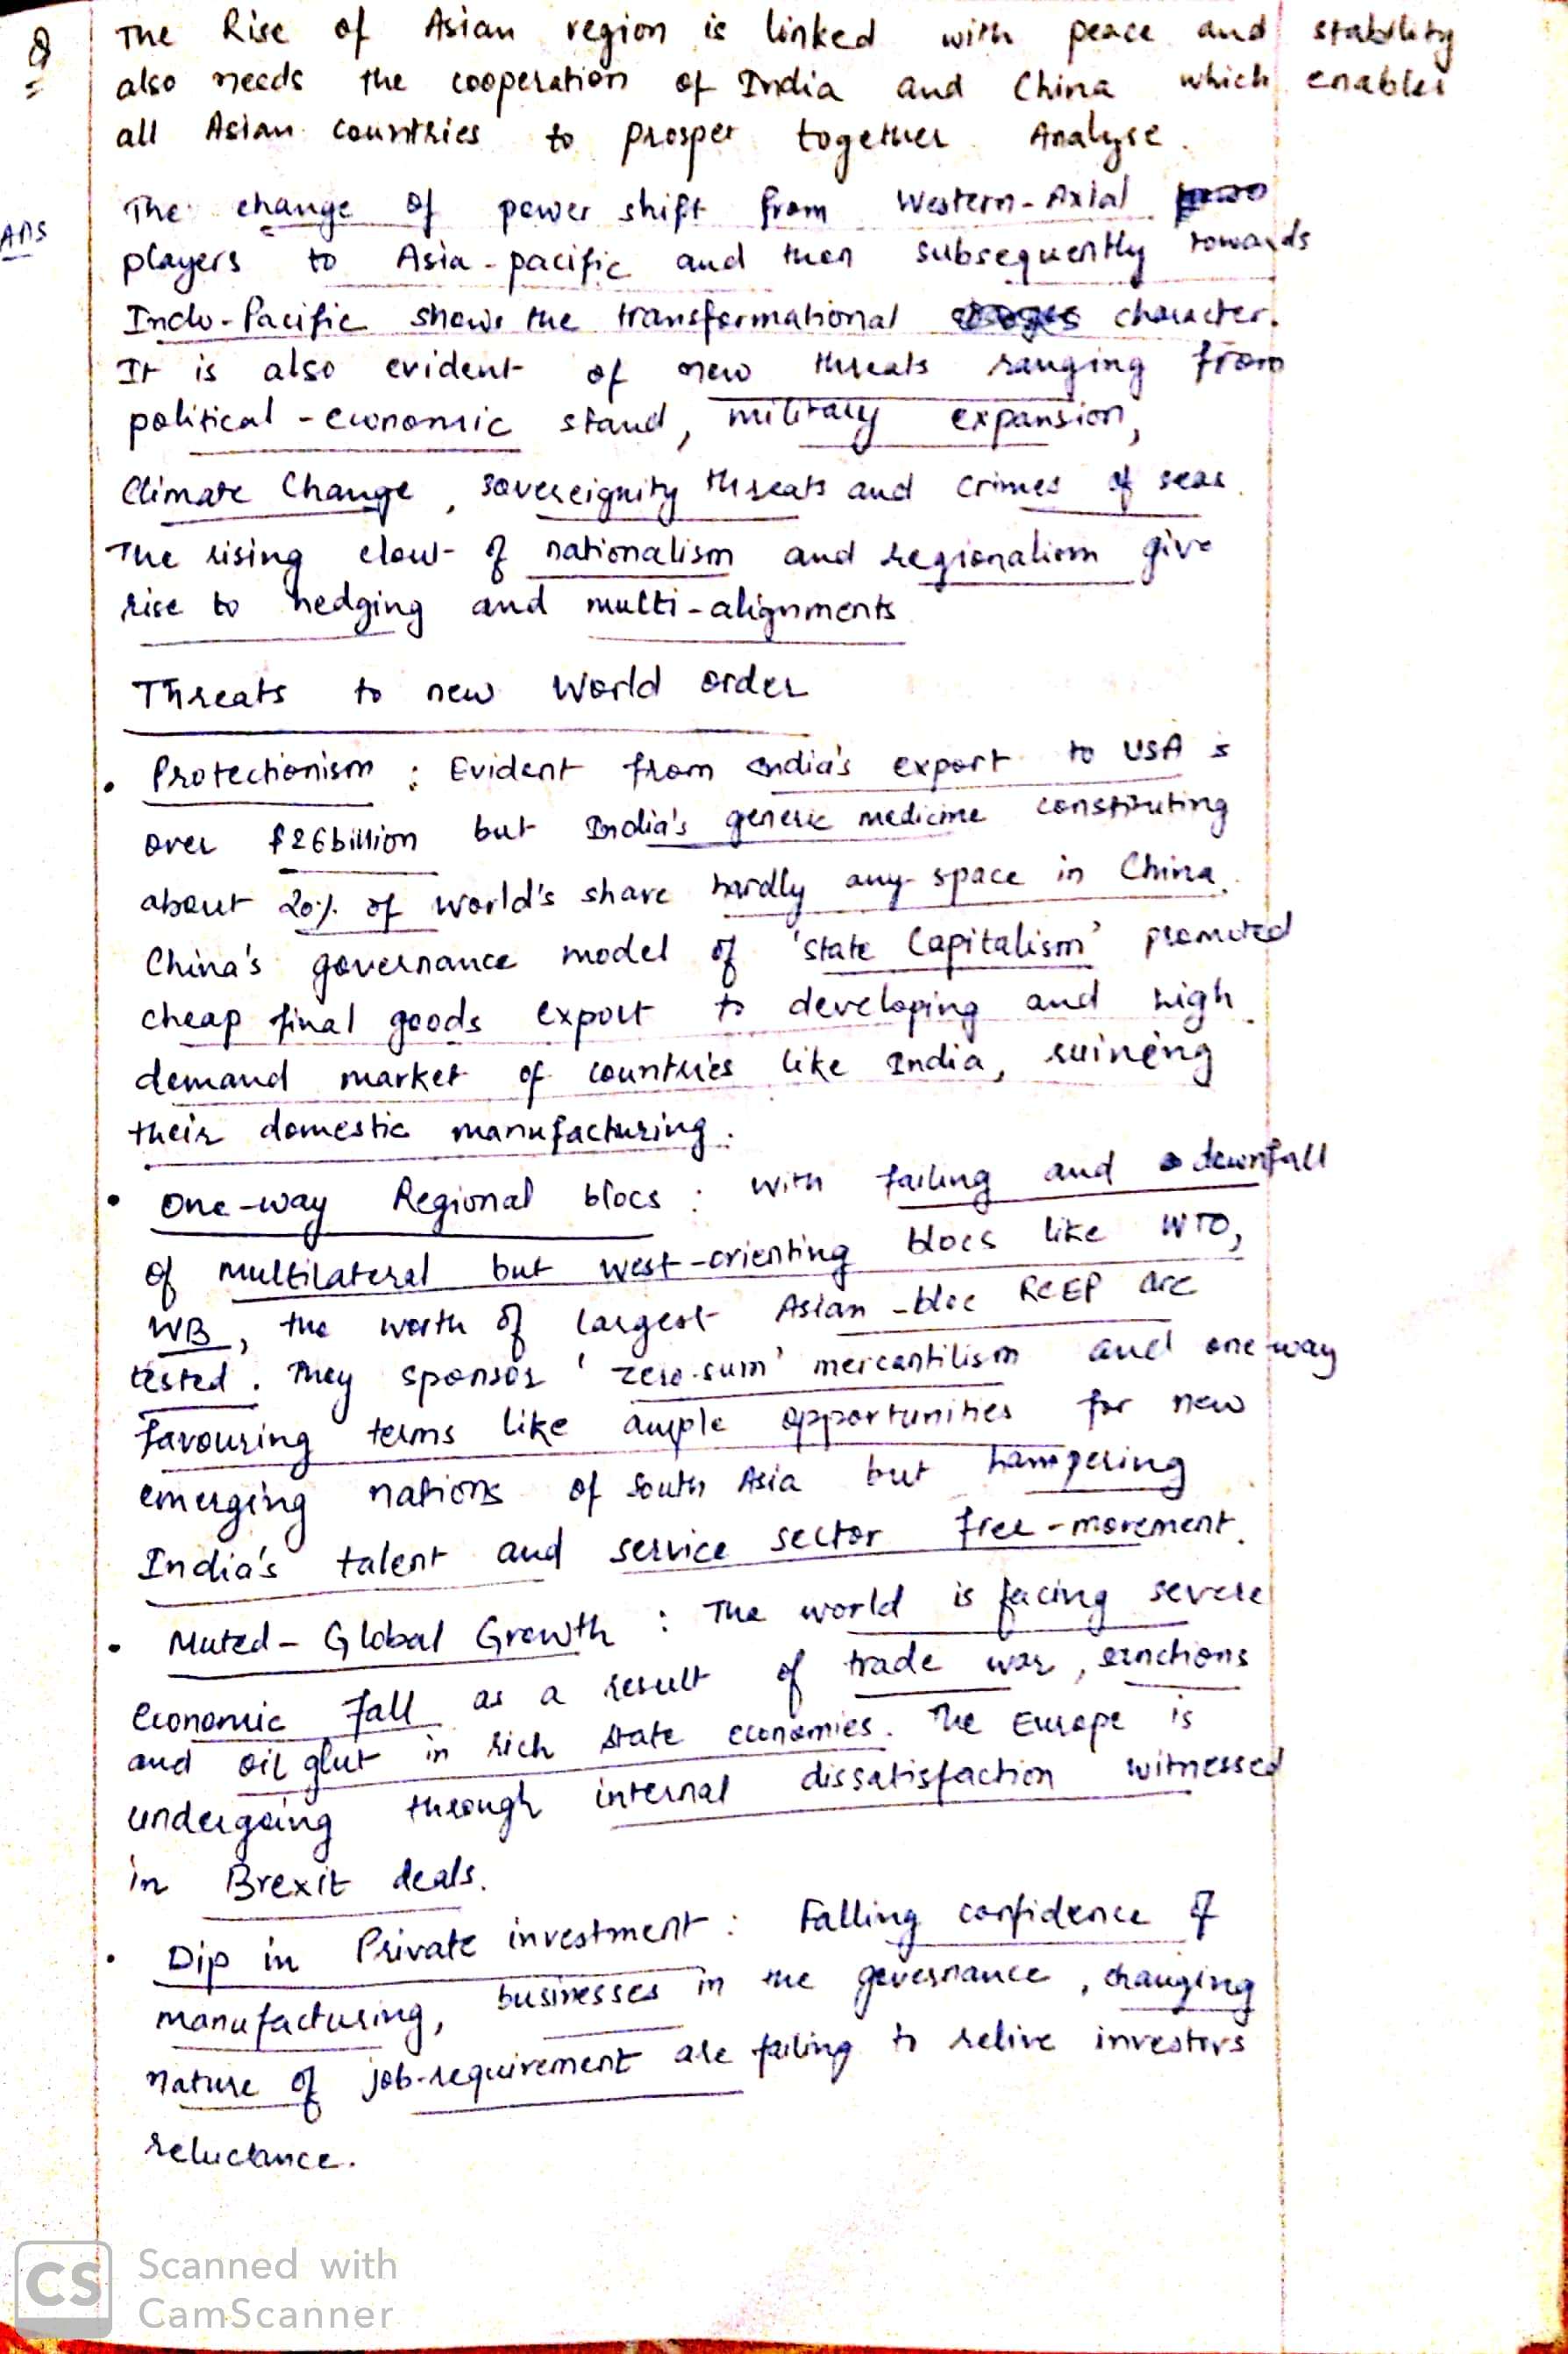 Q The Rise of Asian region is linked with peace and stability
also needs the cooperation of India and China which enables
all Asian countries to prosper together. Analyse.
Ans The change of power shift from Western-Axial
players to Asia-pacific and then subsequently towards
Indo-Pacific shows the transformational character.
It is also evident of new threats ranging from
political-economic stand, military expansion,
Climate Change, sovereignity threats and crimes of seas.
The rising clout of nationalism and regionalism give
rise to hedging and multi-alignments
Threats to new World order
• Protectionism : Evident from India's export to USA is
over $26billion but India's generic medicine constituting
about 20% of world's share hardly any space in China.
China's governance model of 'State Capitalism' promoted
cheap final goods export to developing and high
demand market of countries like India, ruining
their domestic manufacturing.
• One-way Regional blocs : With failing and downfall
of multilateral but west-orienting blocs like WTO,
WB, the worth of largest Asian-bloc RCEP are
tested. They sponsor 'zero-sum' mercantilism and one way
favouring terms like ample opportunities for new
emerging nations of South Asia but hampering
India's talent and service sector free-movement.
• Muted-Global Growth : The world is facing severe
economic fall as a result of trade war, sanctions
and oil glut in rich state economies. The Europe is
undergoing through internal dissatisfaction witnessed
in Brexit deals.
• Dip in Private investment : Falling confidence of
manufacturing, businesses in the governance, changing
nature of job-requirement are failing to relive investors
reluctance.
CS Scanned with
CamScanner